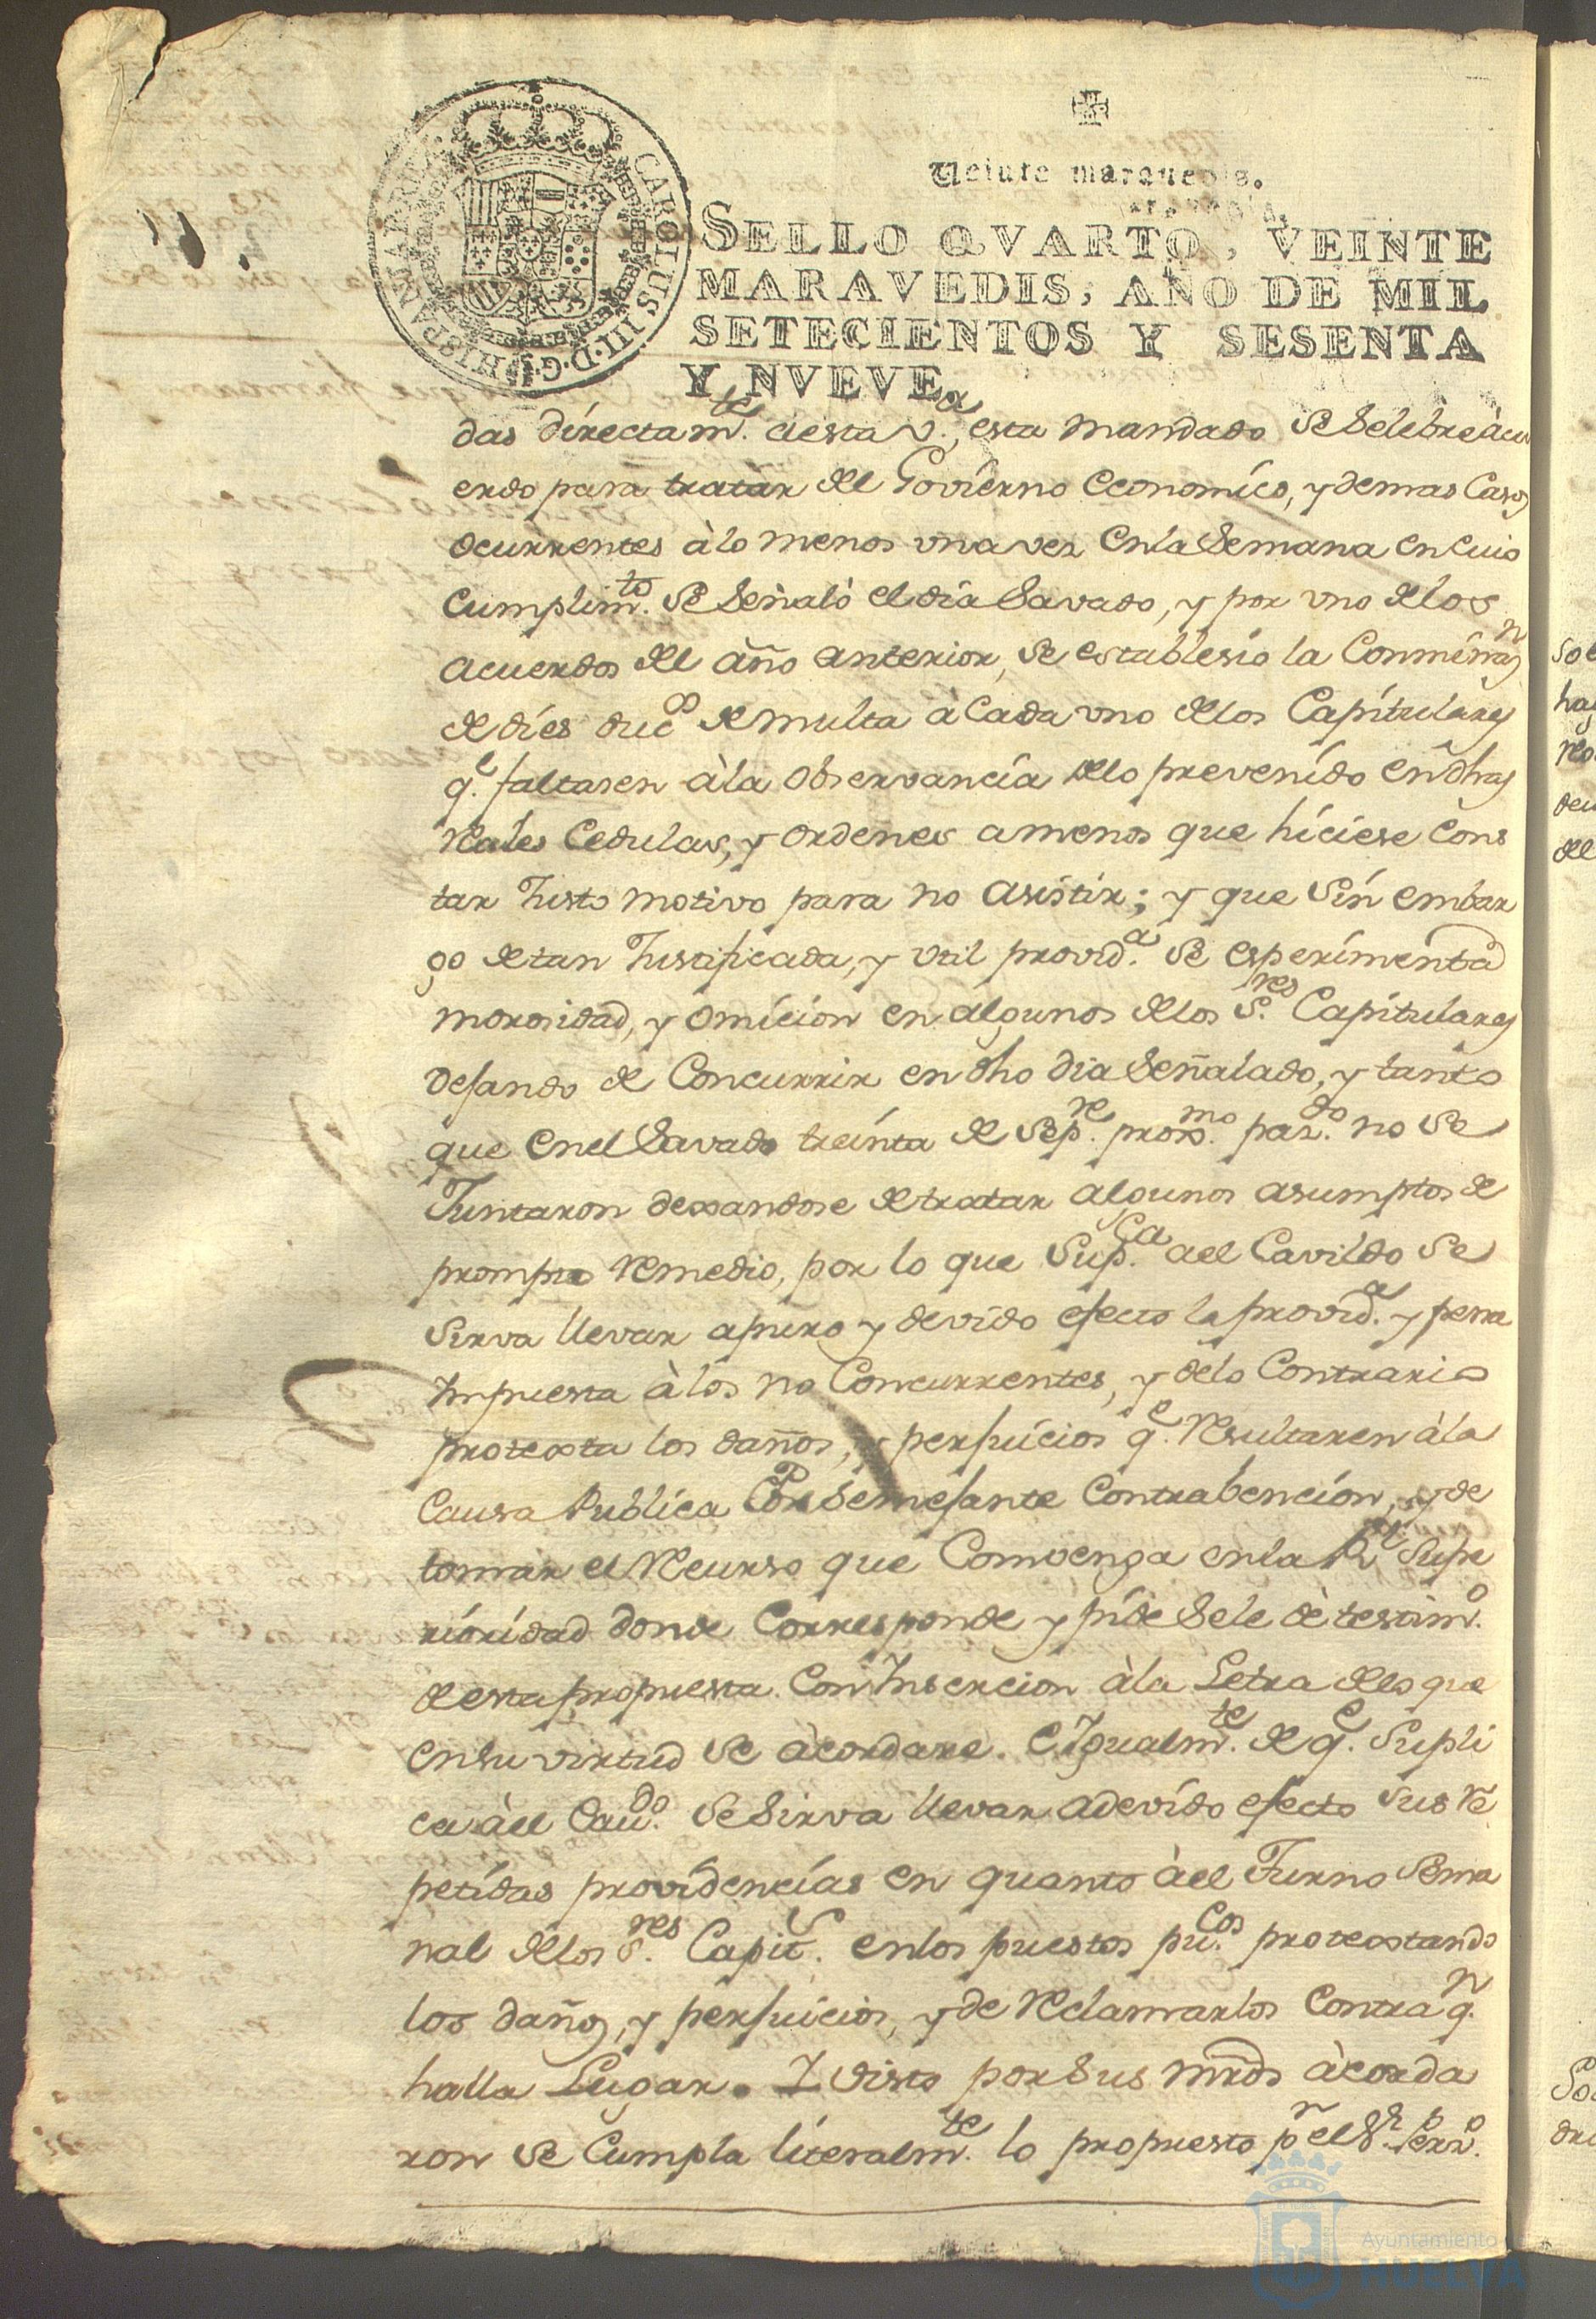 Veinte maravedis.
SELLO QVARTO, VEINTE
MARAVEDIS, AÑO DE MIL
SETECIENTOS Y SESENTA
Y NVEVE.
CAROLUS III·D·G·HISPANIAR·REX
das directamte. a esta V.a, esta mandado se selebre àcu
erdo para tratar del Govierno economico, y demas Casos
ocurrentes à lo menos una vez en la Semana en cuio
cumplimto. se señalò el dia Savado, y por uno de los
acuerdos del año anterior, se establesio la Conminn.
de dies ducos de multa à Cada uno de los Capitulares
q.e faltasen à la observancia de lo prevenido en dhas
Reales Cedulas, y ordenes a menos que hiciese Cons
tar Justo motivo para no asistir; y que sin embar
go de tan Justificada, y util provid.a se esperimenta
morosidad, y omicion en algunos de los S.res Capitulares
desando de Concurrir en dho dia Señalado, y tanto
que en el Savado treinta de Sep.re prox.mo pas.do no se
Juntaron dexandose de tratar algunos asumptos de
prompto remedio, por lo que Sup.ca ael Cavildo se
sirva llevar a puro y devido efecto la provid.a y pena
Impuesta à los no Concurrentes, y de lo Contrario
protexta los daños, y perjuicios q.e resultaren à la
Causa Publica Por semejante Contrabencion, y de
tomar el Recurso que Convenga en la R.l Supe
rioridad donde Corresponde y pide se le dè testim.o
de esta propuesta Con Insercion à la Letra de lo que
en su virtud se àcordare. E Igualm.te de q.e Supli
ca àel Cav.do se sirva llevar a devido efecto sus re
petidas providencias en quanto àel Turno sema
nal de los S.res Capit.s en los puestos pu.cos protextando
los daños, y perjuicios, y de reclamarlos Contra q.n
halla Lugar. I visto por sus mrds àcorda
ron se Cumpla literalm.te lo propuesto p.r el S.r Pers.o
Ayuntamiento de
HUELVA